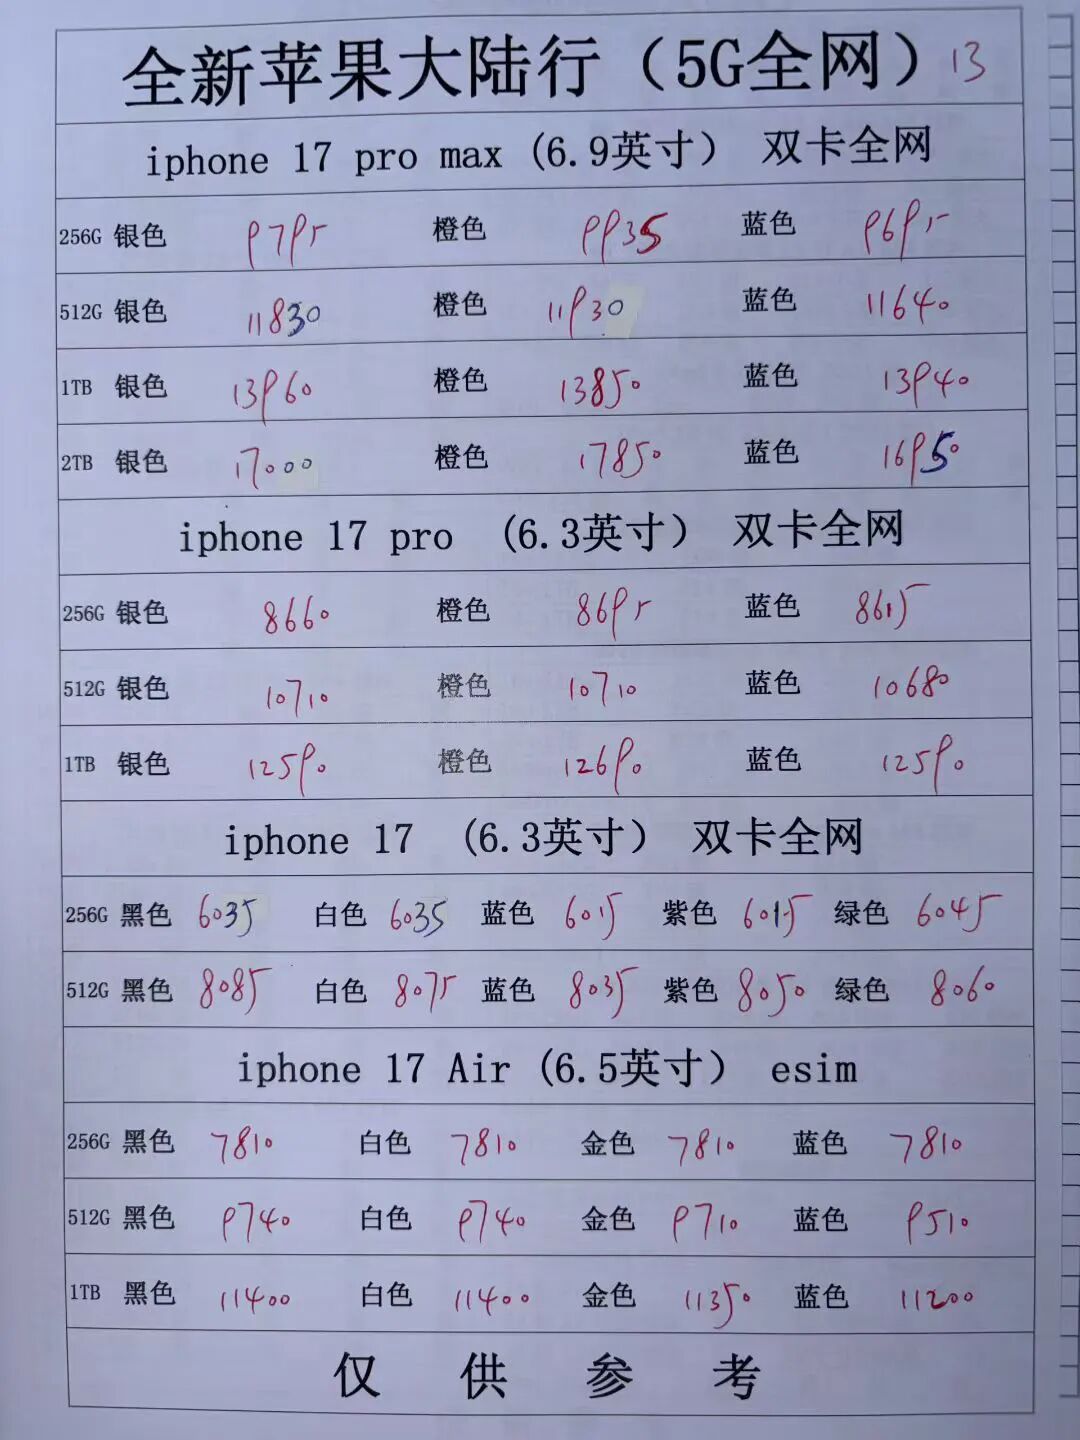 全新苹果大陆行（5G全网）13
iphone 17 pro max (6.9英寸） 双卡全网
256G 银色 9795 橙色 9935 蓝色 9695
512G 银色 11830 橙色 11930 蓝色 11640
1TB 银色 13960 橙色 13850 蓝色 13940
2TB 银色 17000 橙色 17850 蓝色 16950
iphone 17 pro (6.3英寸） 双卡全网
256G 银色 8660 橙色 8695 蓝色 8615
512G 银色 10710 橙色 10710 蓝色 10680
1TB 银色 12590 橙色 12690 蓝色 12590
iphone 17 (6.3英寸） 双卡全网
256G 黑色 6035 白色 6035 蓝色 6015 紫色 6015 绿色 6045
512G 黑色 8085 白色 8075 蓝色 8035 紫色 8050 绿色 8060
iphone 17 Air (6.5英寸） esim
256G 黑色 7810 白色 7810 金色 7810 蓝色 7810
512G 黑色 9740 白色 9740 金色 9710 蓝色 9510
1TB 黑色 11400 白色 11400 金色 11350 蓝色 11200
仅 供 参 考